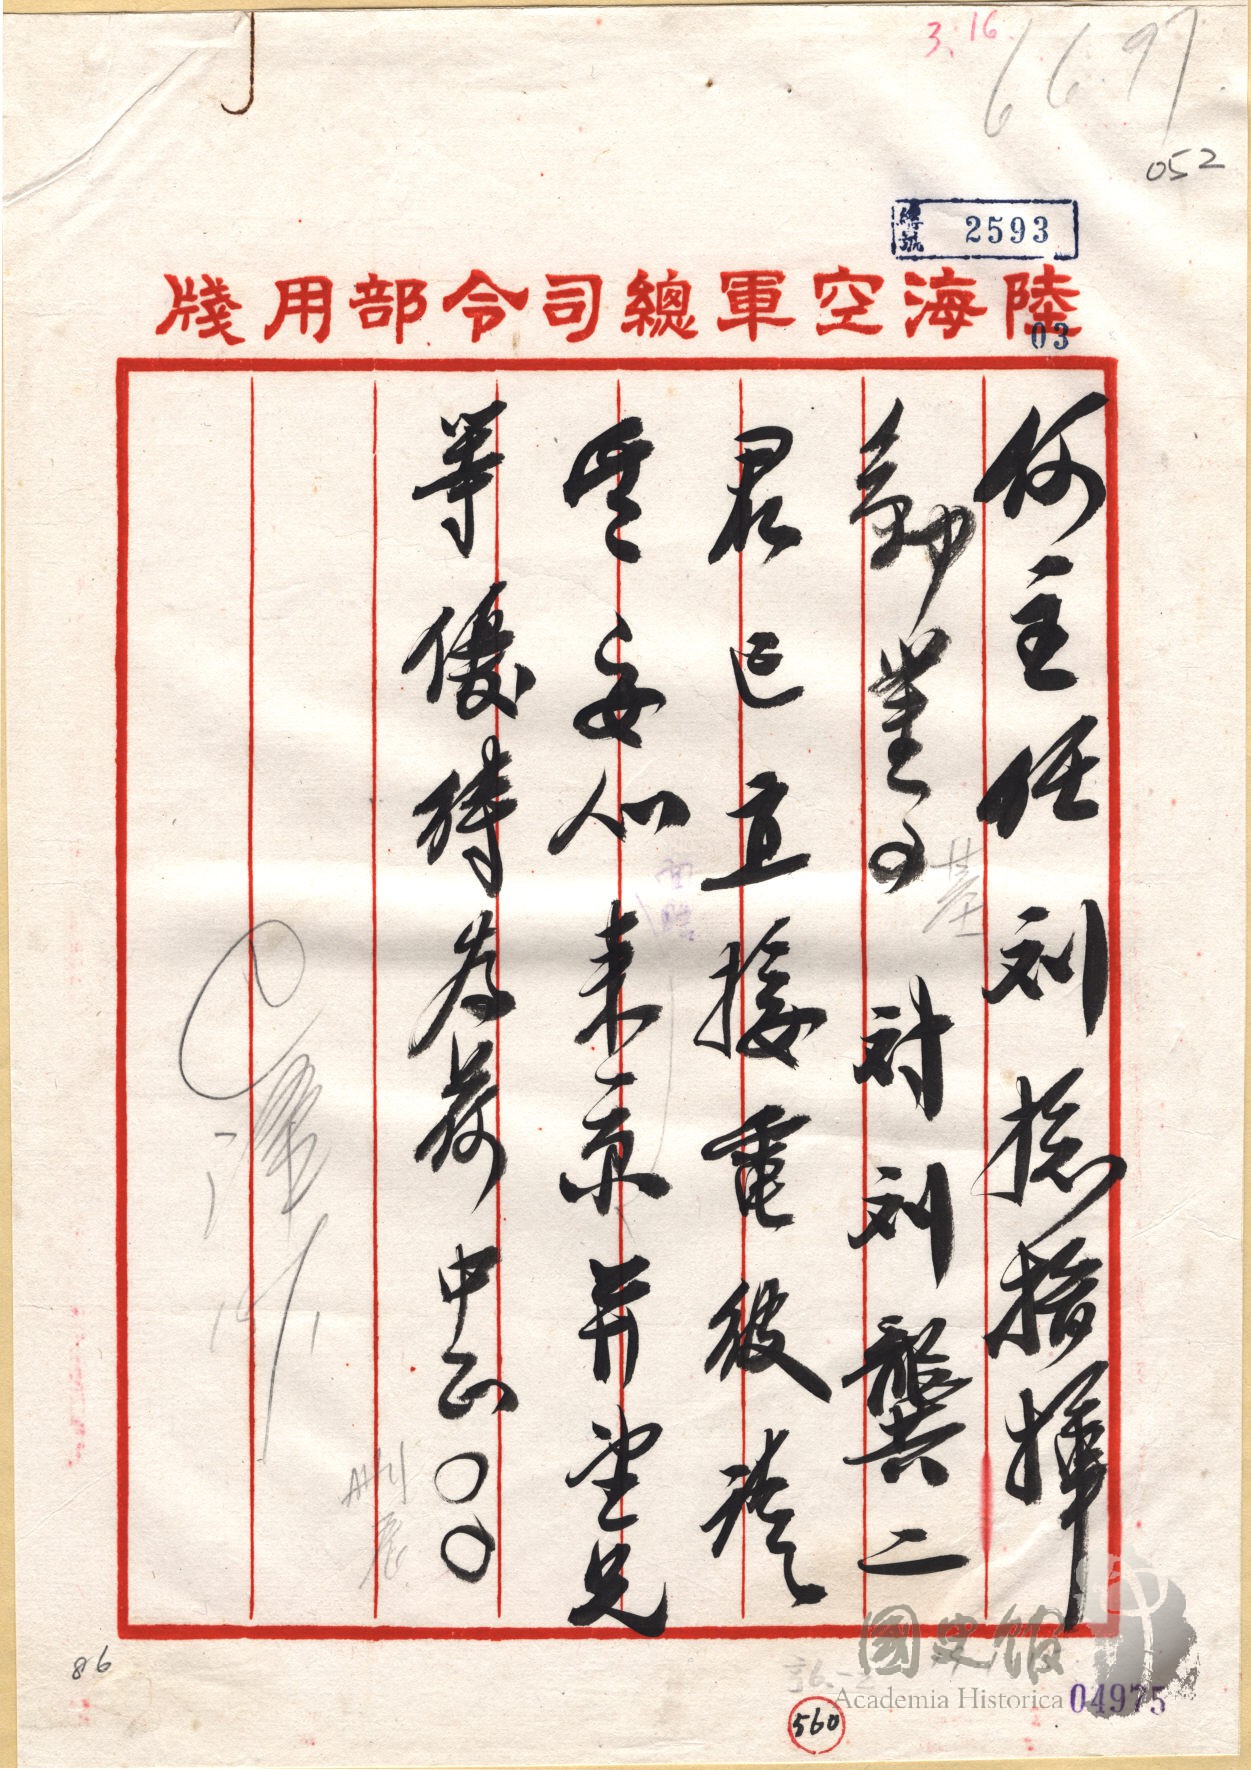 3.16
6697
052
總號 2593
陸海空軍總司令部用牋
03
何主任刘总指揮
勛鑒〇对刘龔二
君已直接電彼請
其安心来京并望兄
等優待為荷中正〇〇
86
國史館
Academia Historica
04975
560